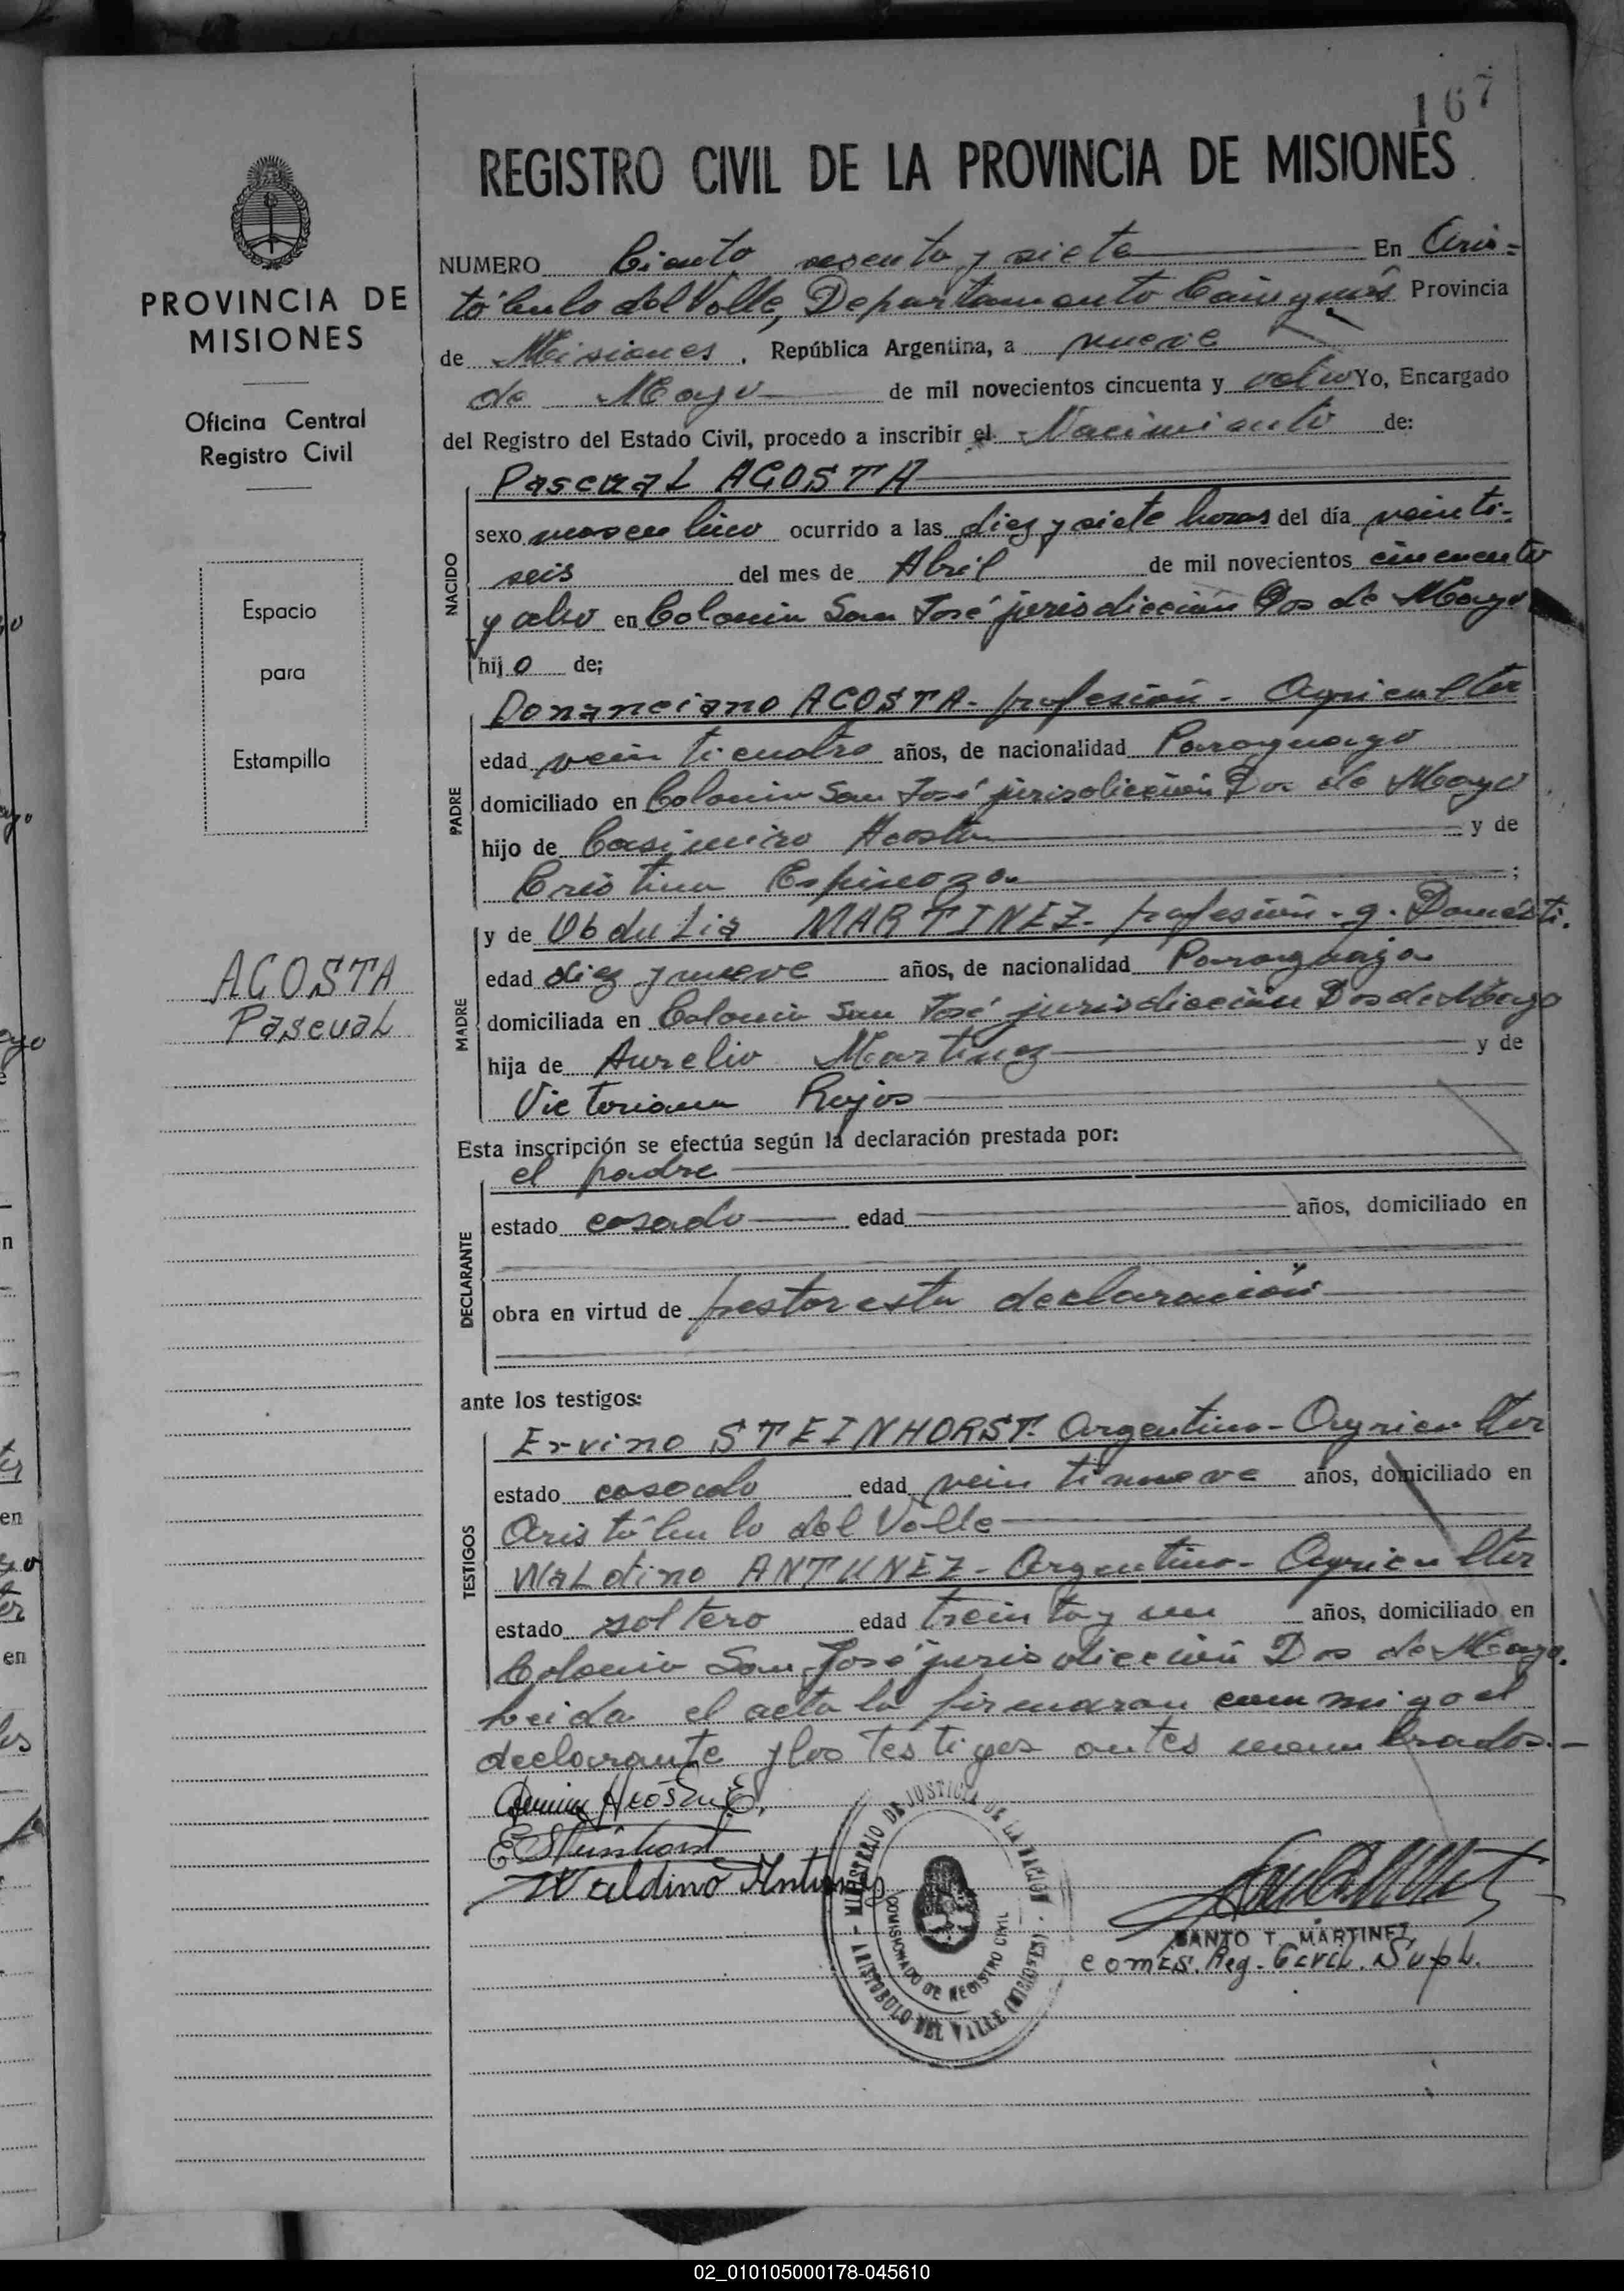 167
REGISTRO CIVIL DE LA PROVINCIA DE MISIONES
PROVINCIA DE
MISIONES
Oficina Central
Registro Civil
Espacio
para
Estampilla
ACOSTA
Pascual
NUMERO Ciento sesenta y siete En Aris=
tóbulo del Valle, Departamento Cainguás Provincia
de Misiones, República Argentina, a nueve
de Mayo de mil novecientos cincuenta y ocho Yo, Encargado
del Registro del Estado Civil, procedo a inscribir el Nacimiento de:
NACIDO
Pascual ACOSTA
sexo masculino ocurrido a las diez y siete horas del día veinti-
seis del mes de Abril de mil novecientos cincuenta
y ocho en Colonia San José jurisdicción Dos de Mayo
hijo de;
PADRE
Donanciano ACOSTA- profesión- Agricultor
edad veinticuatro años, de nacionalidad Paraguayo
domiciliado en Colonia San José jurisdicción Dos de Mayo
hijo de Casimiro Acosta y de
Cristina Espinoza ;
MADRE
y de Obdulia MARTINEZ- profesión- q. Domésti.
edad diez y nueve años, de nacionalidad Paraguaya
domiciliada en Colonia San José jurisdicción Dos de Mayo
hija de Aurelio Martinez y de
Victoriana Rojos
Esta inscripción se efectúa según la declaración prestada por:
DECLARANTE
el padre
estado casado edad años, domiciliado en
obra en virtud de prestar esta declaración
ante los testigos:
TESTIGOS
Ervino STEINHORST- Argentino- Agricultor
estado casado edad veintinueve años, domiciliado en
Aristóbulo del Valle
Waldino ANTUNEZ- Argentino- Agricultor
estado soltero edad treinta y un años, domiciliado en
Colonia San José jurisdicción Dos de Mayo.
Leida el acta la firmaran conmigo el
declarante y los testigos antes nombrados.-
Acosta E.
E Steinhorst
Waldino Antunez
MINISTERIO DE JUSTICIA DE LA NACION
COMISIONADO DE REGISTRO CIVIL
ARISTOBULO DEL VALLE (MISIONES)
SANTO T. MARTINEZ
comis. Reg. Civil. Supl.
02_010105000178-045610